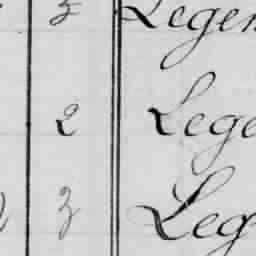 3 Legen
2 Lege
3 Leg